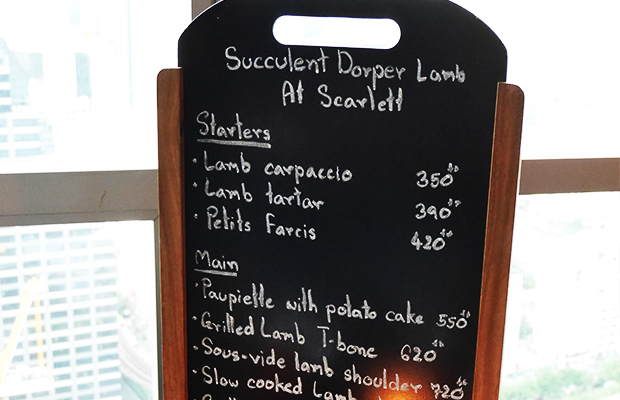 Succulent Dorper Lamb
At Scarlett
Starters
· Lamb carpaccio 350
· Lamb tartar 390
· Petits Farcis 420
Main
· Paupiette with potato cake 550
· Grilled Lamb T-bone 620
· Sous-vide lamb shoulder 720
· Slow cooked Lamb